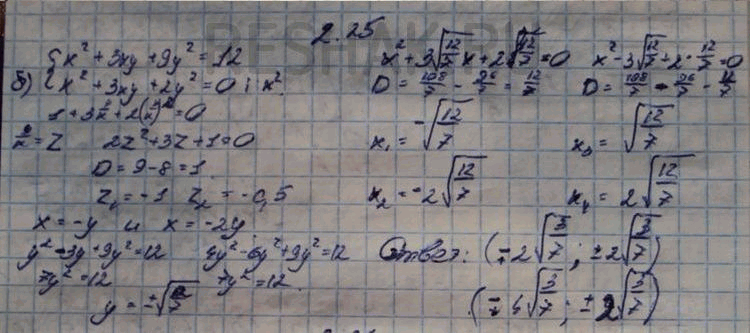 2.25
б) { x² + 3xy + 9y² = 12
{ x² + 3xy + 2y² = 0 | : x²
1 + 3 y/x + 2(y/x)² = 0
y/x = Z 2Z² + 3Z + 1 = 0
D = 9 - 8 = 1
Z₁ = -1 Z₂ = -0,5
x = -y и x = -2y
y² - 3y + 9y² = 12 4y² - 6y² + 9y² = 12
7y² = 12 7y² = 12
y = ±√12/7
x² + 3√12/7 x + 2√12/7 = 0 x² - 3√12/7 + 2 · 12/7 = 0
D = 108/7 - 96/7 = 12/7 D = 108/7 - 96/7 - 12/7
x₁ = -√12/7 x₃ = √12/7
x₂ = -2√12/7 x₄ = 2√12/7
Ответ: (∓2√3/7 ; ±2√3/7)
(∓4√3/7 ; ±2√3/7)